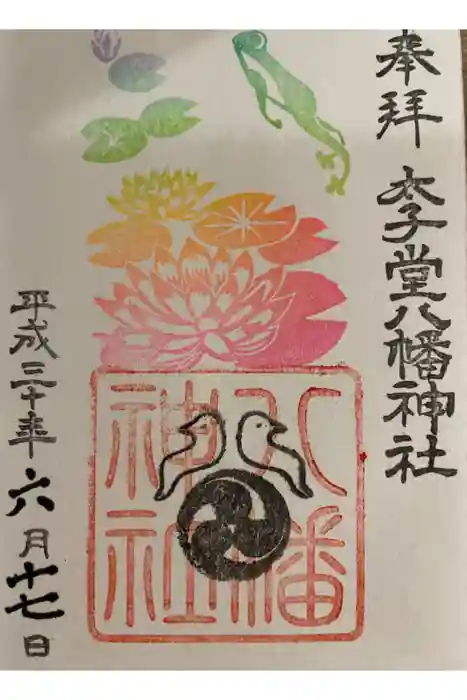 奉拝
太子堂八幡神社
八幡
神社
平成三十年六月十七日